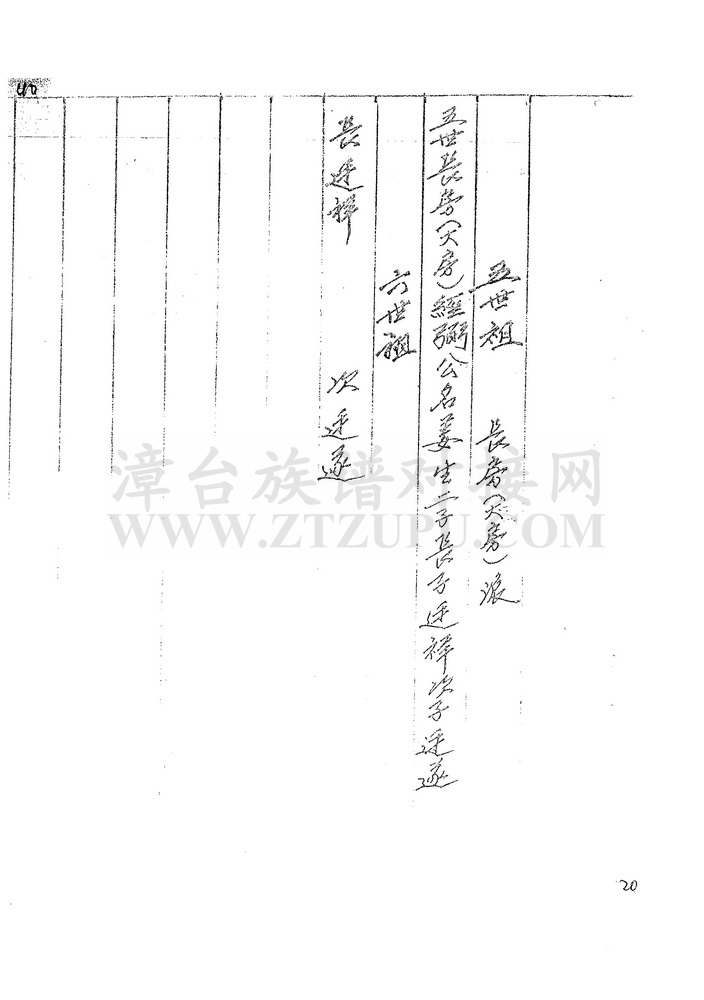 40
五世祖 長房(天房)派
五世長房(天房)經弼公名姜生二子長子廷祥次子廷遂
六世祖
長廷祥 次廷遂
漳台族谱对接网
WWW.ZTZUPU.COM
20